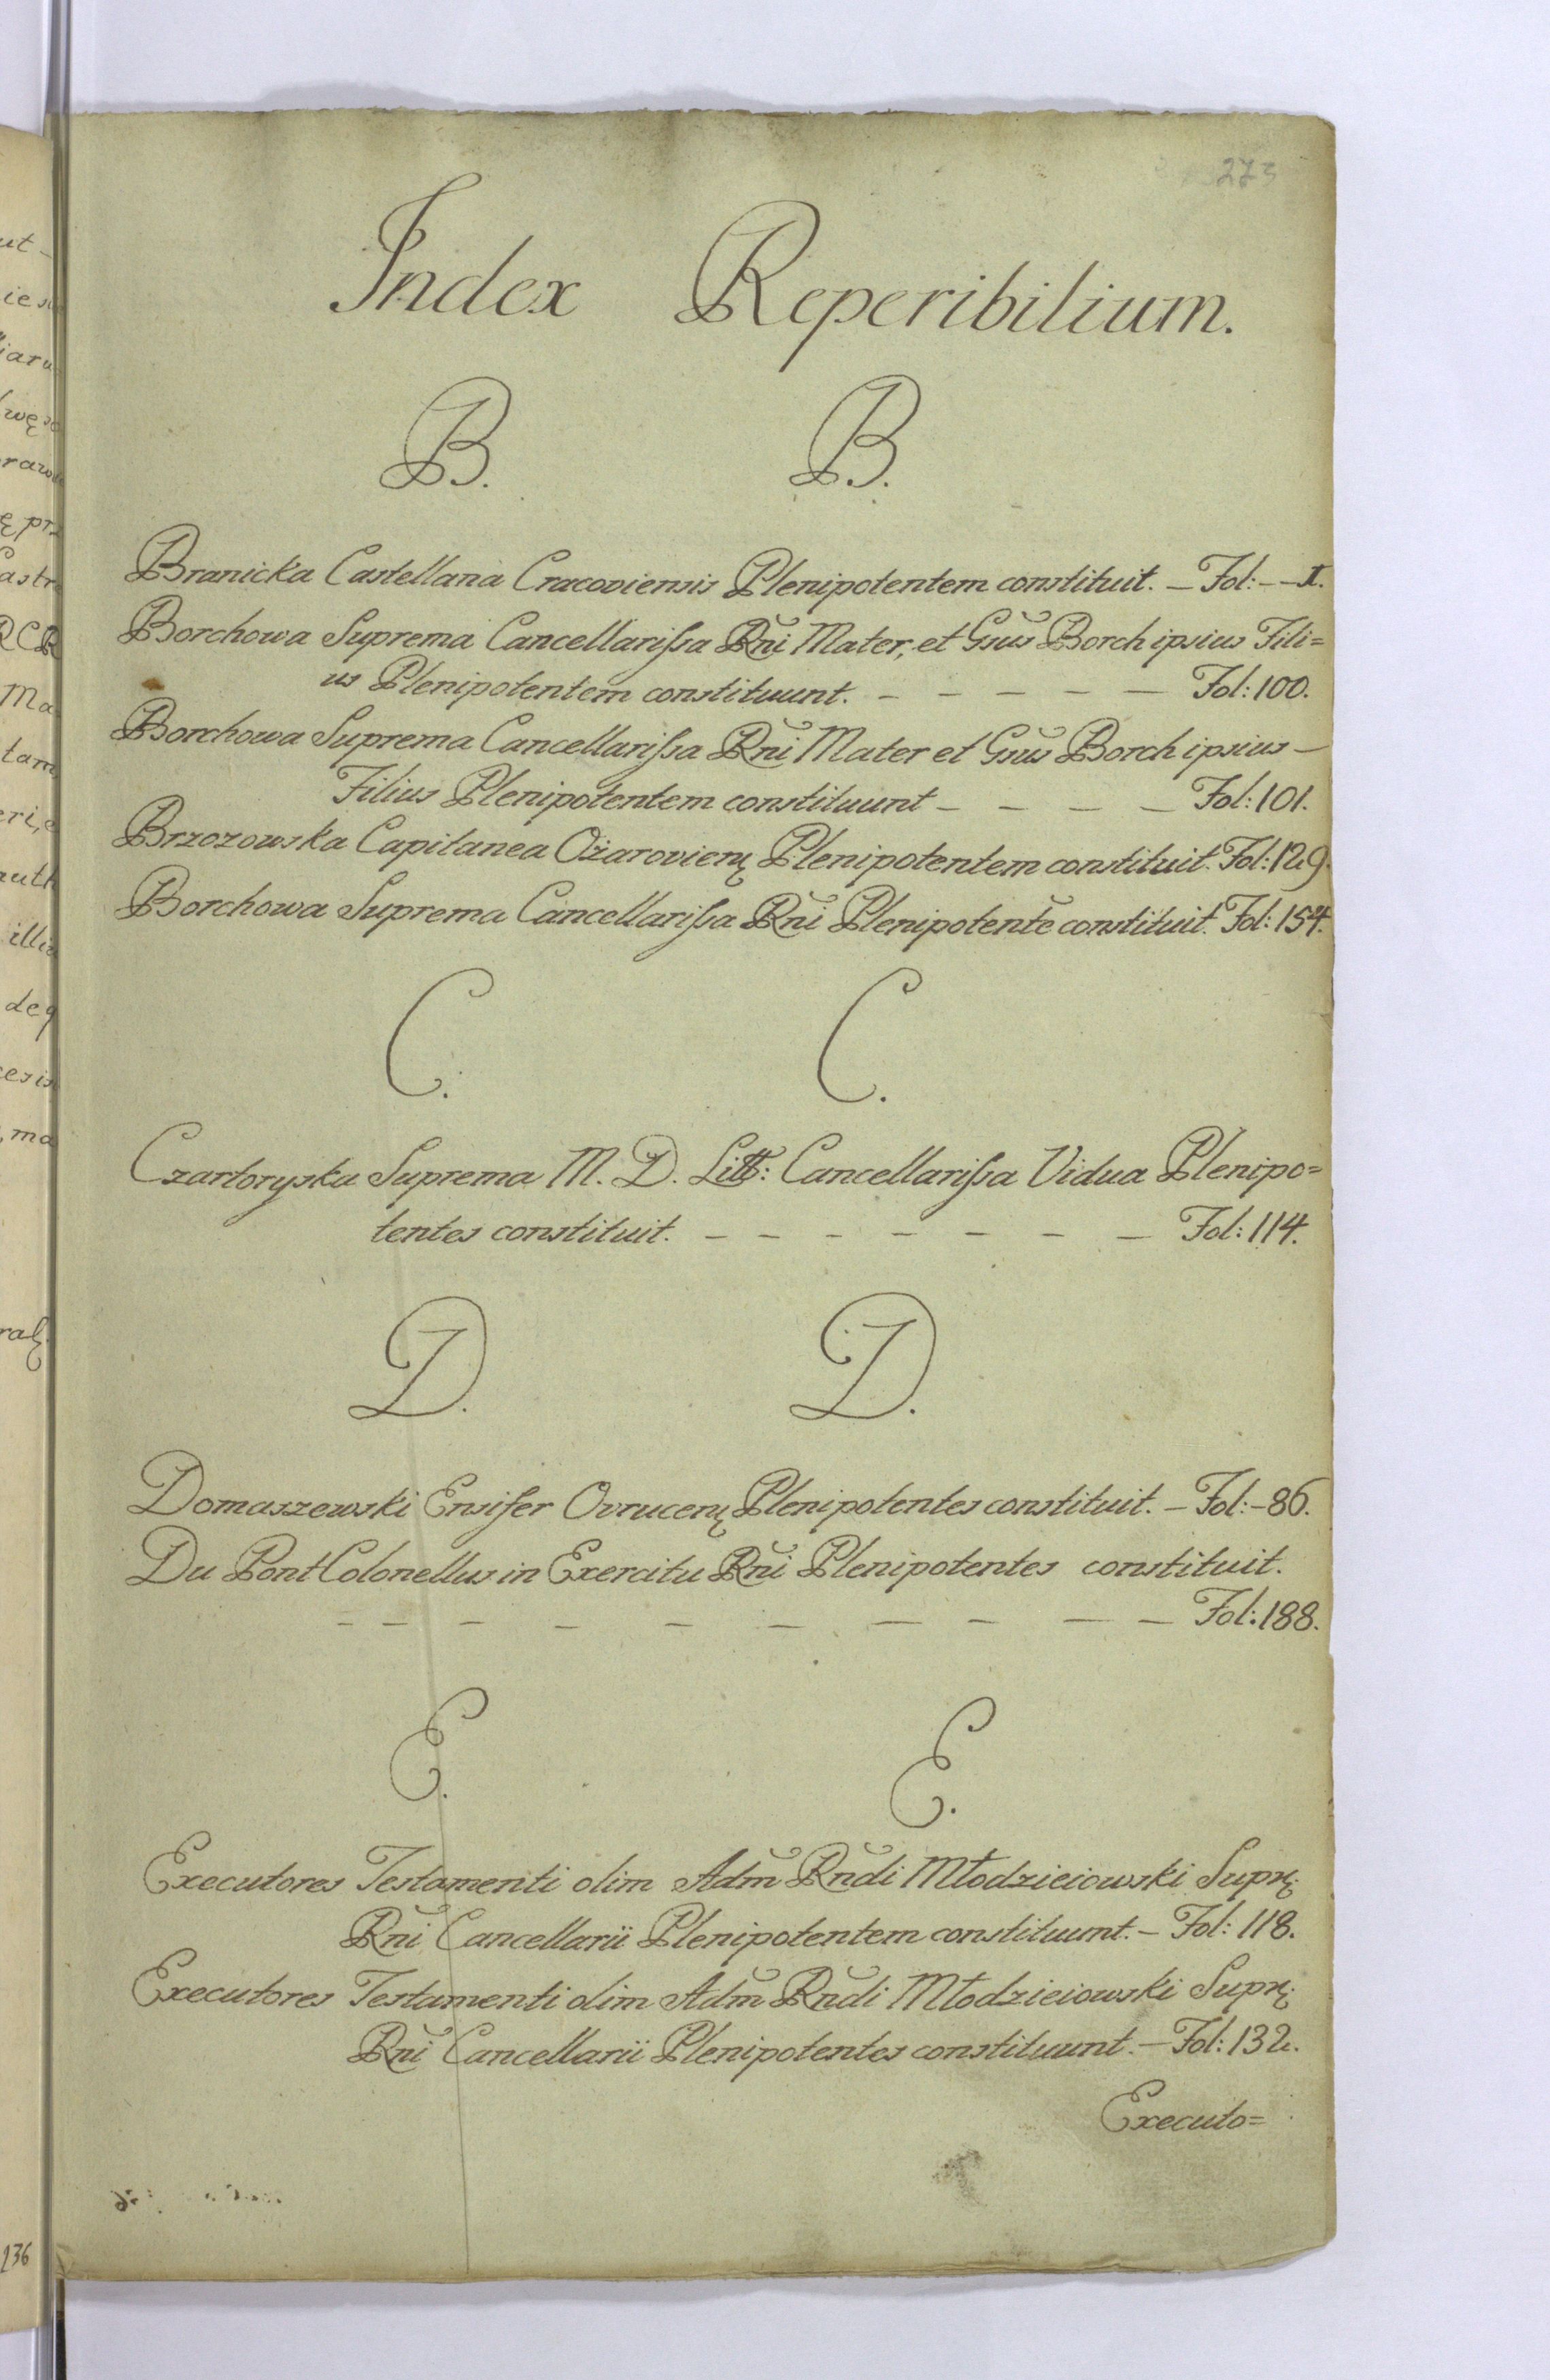 273
Index Reperibilium.
B. B.
Branicka Castellana Cracoviensis Plenipotentem constituit. – Fol: – – 1.
Borchowa Suprema Cancellarissa Rni Mater, et Gsus Borch ipsius Fili=
us Plenipotentem constituunt. – – – – – – Fol: 100.
Borchowa Suprema Cancellarissa Rni Mater et Gsus Borch ipsius –
Filius Plenipotentem constituunt – – – – – Fol: 101.
Brzozowska Capitanea Ożarovien Plenipotentem constituit. Fol: 129.
Borchowa Suprema Cancellarissa Rni Plenipotentē constituit. Fol: 154.
C. C.
Czartoryska Suprema M. D. Litt: Cancellarissa Vidua Plenipo=
tentes constituit. – – – – – – – – Fol: 114.
D. D.
Domaszewski Ensifer Ovrucen Plenipotentes constituit. – Fol: – 86.
Du Pont Colonellus in Exercitu Rni Plenipotentes constituit.
– – – – – – – – – – Fol: 188.
E. E.
Executores Testamenti olim Adm Rndi Młodzieiowski Supr:
Rni Cancellarii Plenipotentem constituunt. – Fol: 118.
Executores Testamenti olim Adm Rndi Młodzieiowski Supr:
Rni Cancellarii Plenipotentes constituunt. – Fol: 132.
Executo=
136